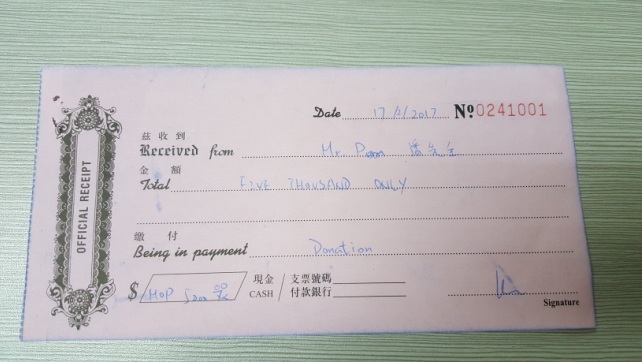 OFFICIAL RECEIPT
Date 17/2/2017 No 0241001
茲收到
Received from Mr. 潘先生
金額
Total FIVE THOUSAND ONLY
繳付
Being in payment Donation
$ MOP 5000 現金 CASH / 支票號碼 付款銀行
Signature